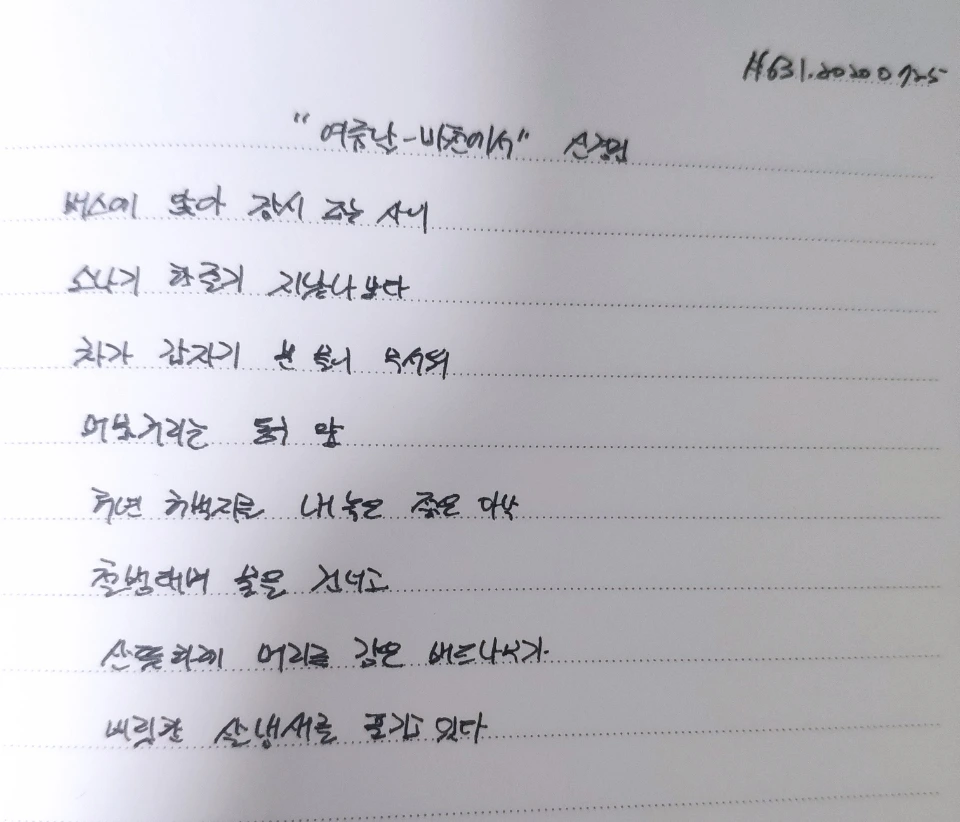 #631.20200725
"여름날-마천에서" 신경림
버스에 앉아 잠시 조는 사이
소나기 한 줄기 지났나 보다
차가 갑자기 분 물이 무서워
머뭇거리는 동구 앞
허연 허벅지를 내놓은 젊은 아낙
철벙대며 물을 건너고
산뜻하게 머리를 감은 버드나무가
비릿한 살냄새를 풍기고 있다